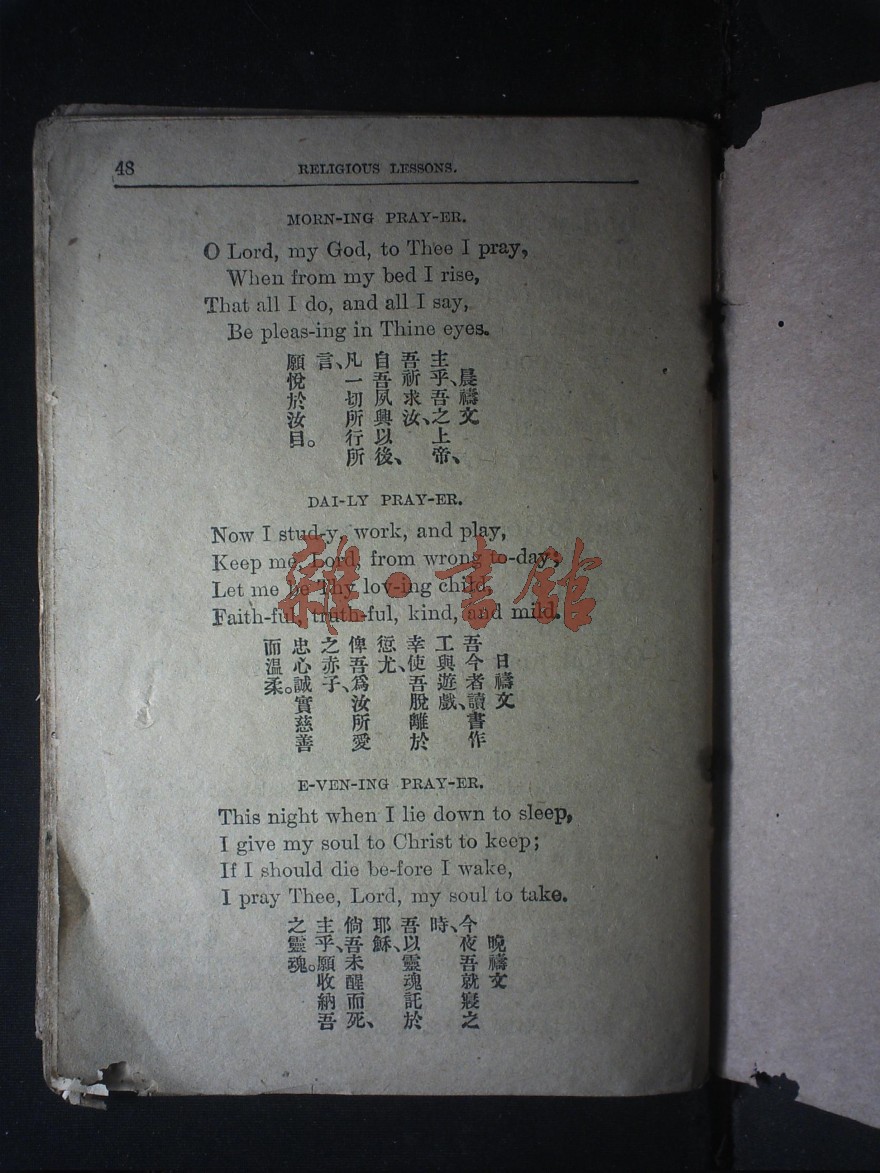 48
RELIGIOUS LESSONS.
MORN-ING PRAY-ER.
O Lord, my God, to Thee I pray,
When from my bed I rise,
That all I do, and all I say,
Be pleas-ing in Thine eyes.
晨禱文
主乎、吾之上帝、
吾祈求汝、
自吾夙興以後、
凡一切所行所
言、
願悅於汝目。
DAI-LY PRAY-ER.
Now I stud-y, work, and play,
Keep me, Lord, from wrong to-day;
Let me be Thy lov-ing child,
Faith-ful, truth-ful, kind, and mild.
日禱文
吾今者讀書作
工與遊戲、
幸使吾脫離於
愆尤、
俾吾爲汝所愛
之赤子、
忠心誠實慈善
而温柔。
E-VEN-ING PRAY-ER.
This night when I lie down to sleep,
I give my soul to Christ to keep;
If I should die be-fore I wake,
I pray Thee, Lord, my soul to take.
晚禱文
今夜吾就寢之
時、
吾以靈魂託於
耶穌、
倘吾未醒而死、
主乎、願收納吾
之靈魂。
雜·書館